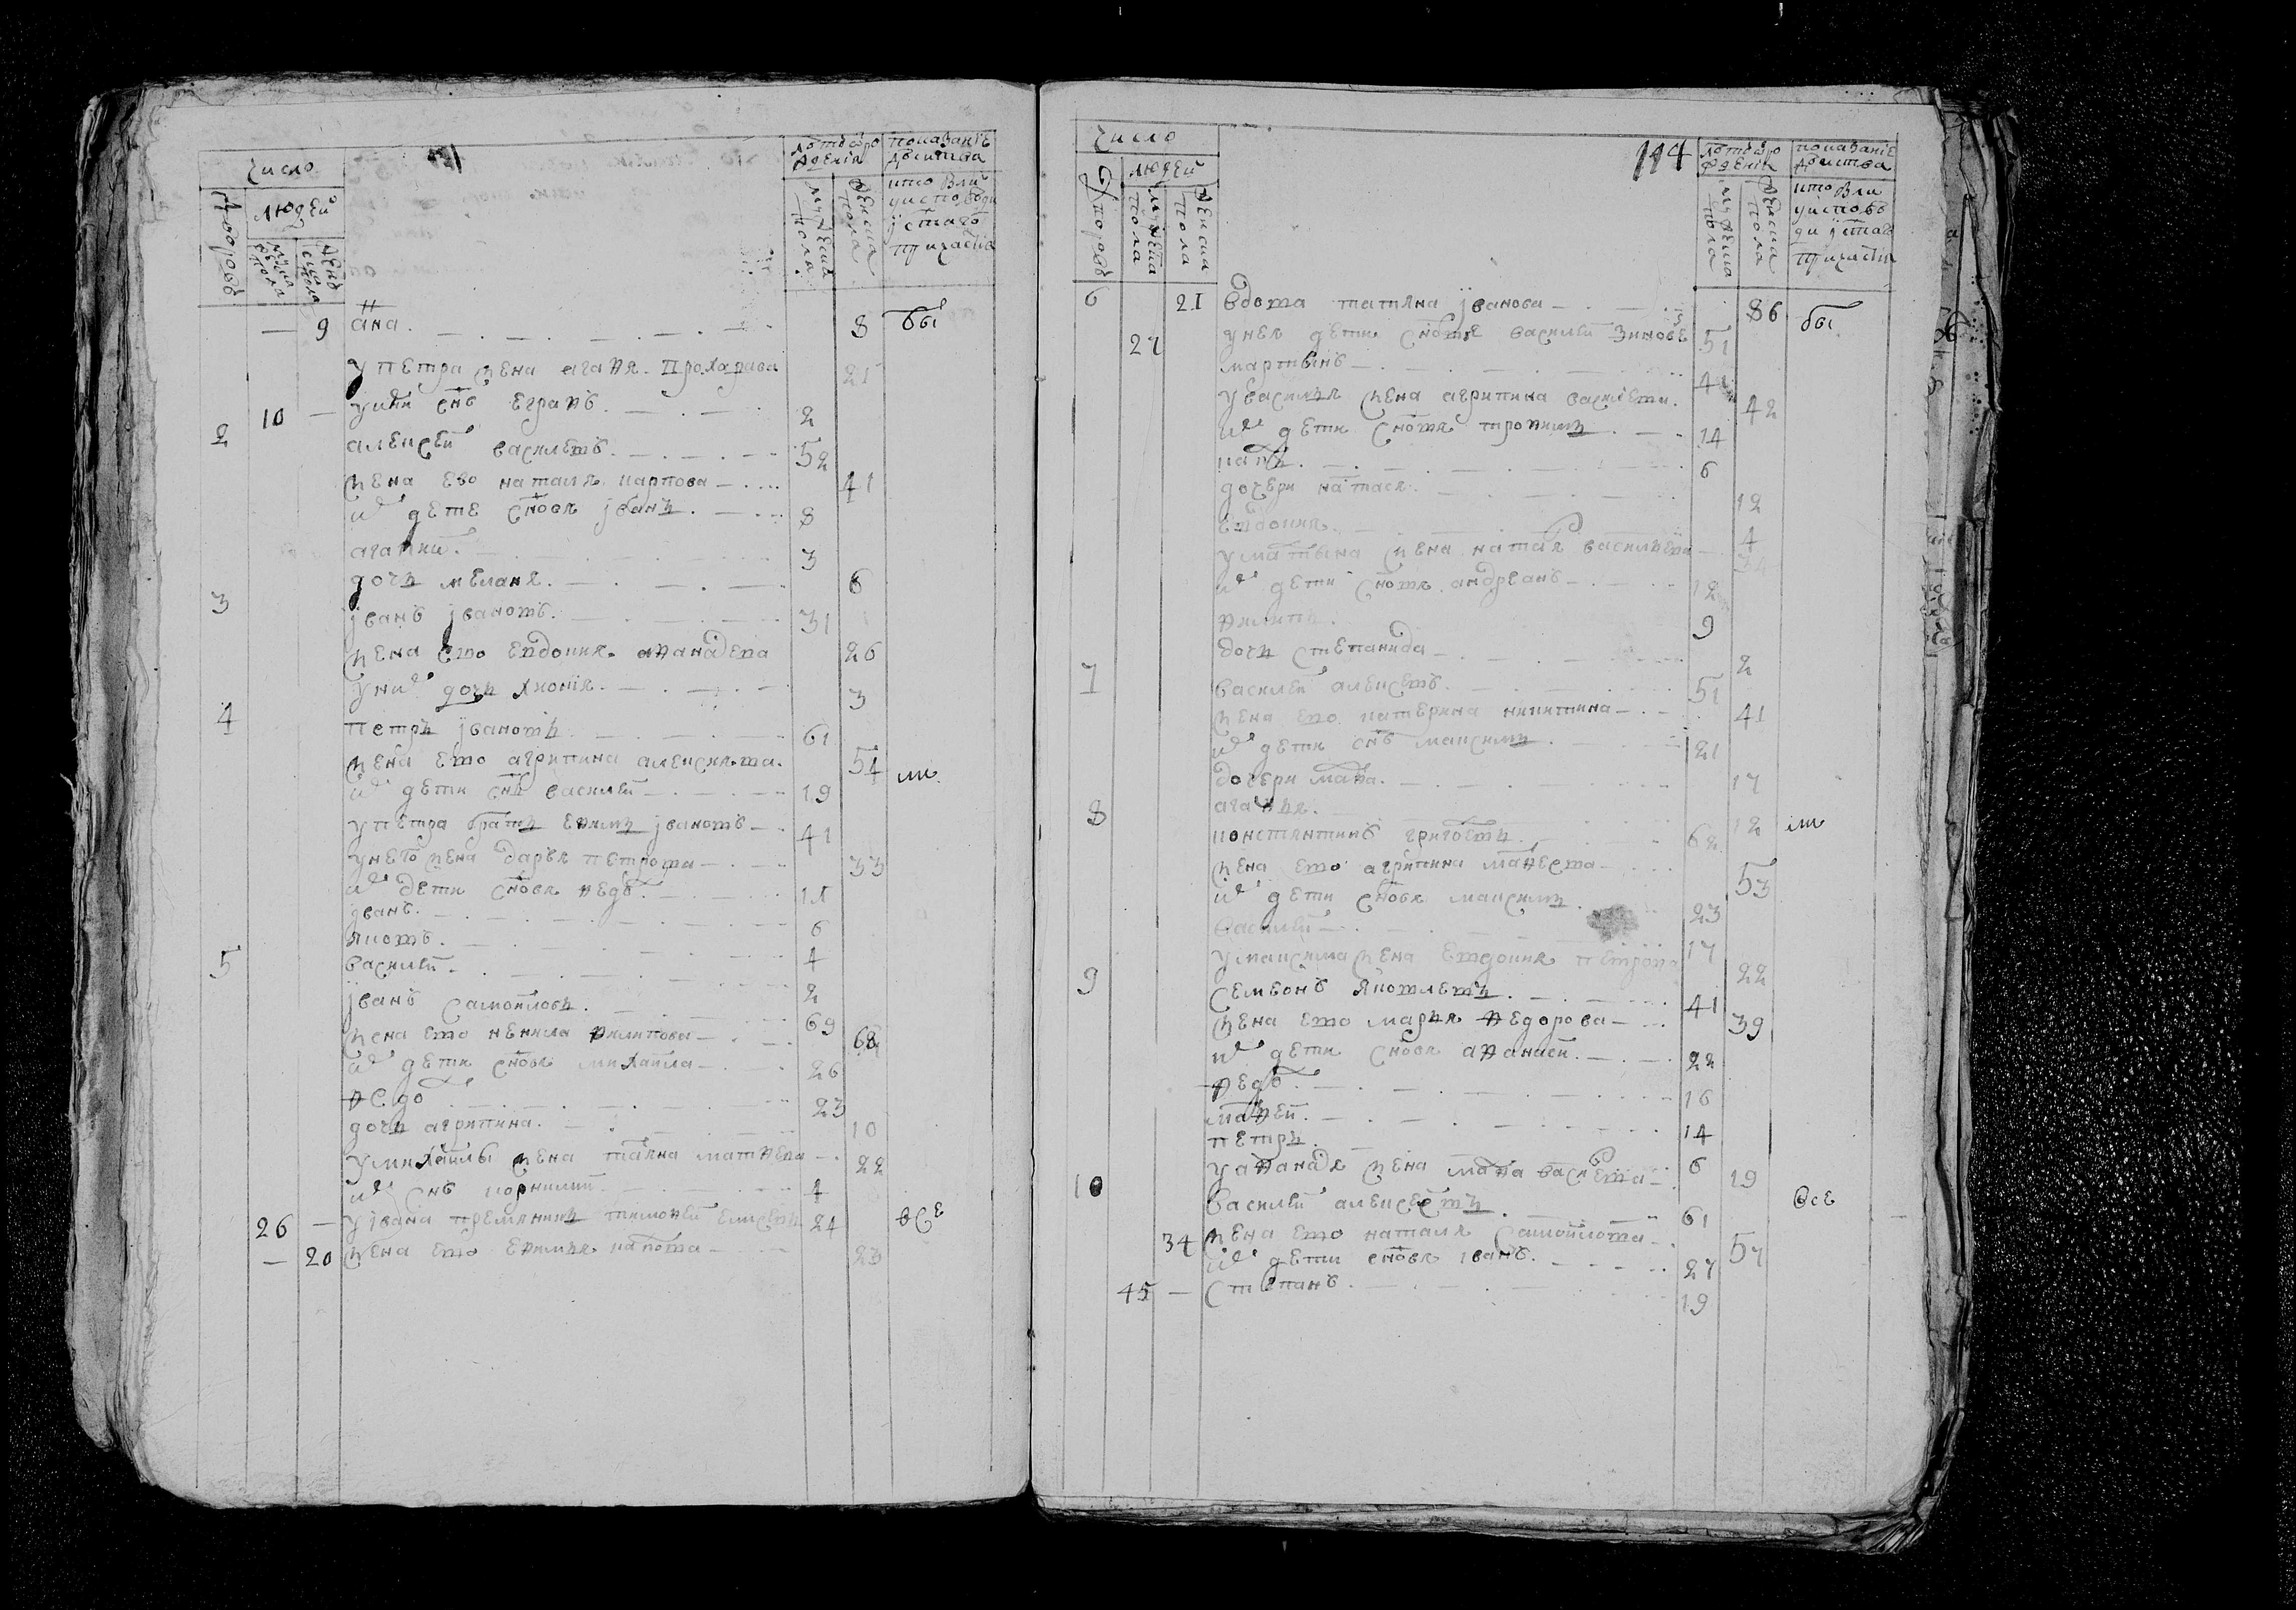 число
дворовъ
людей
мужеска пола
женска пола
лѣтъ от рождения
показание действа
мужеска пола
женска пола
кто были у исповеди и святаго причастия
— 9 анна 8 бы
у петра жена агафя прохарава 21
у них снъ еграфъ 2
10 —
2 алексей василевъ 52
жена ево наталя карпова 41
их дете сновя иванъ 8
агапки 3
дочь меланя 6
3 иванъ ивановъ 31
жена ево евдокия афанадева 26
у них дочь 3
4 петръ ивановъ 61
жена ево агрипина алексиева 54 ли
их дети снъ василей 19
у петра братъ ефимъ ивановъ 41
у него жена даря петрова 33
их дети сновя федоръ 11
иванъ 6
яковъ 4
василей 2
5 иванъ самойловъ 69
жена ево ненила филипова 68
их дети сновя михайла 26
федо 23
дочь агрипина 10
у михайлы жена таяна матфева 22
их снъ корнилий 4
26 — у ивана племяникъ тимофей елисеевъ 24 все
— 20 жена ево ефимья карпова 23
114
число
дворовъ
людей
мужеска пола
женска пола
лѣтъ от рождения
показание действа
мужеска пола
женска пола
кто были у исповеди и святаго причастия
6 21 вдова татяна иванова 86 бы
27 у нея дети сновя василей зиновей 51
мартынъ 41
у василя жена агрипина василева 42
их дети сновя трофимъ 14
карпъ 6
дочери настася 12
евдокия 4
у мартына жена наталя василева 34
их дети сновя андреанъ 12
филипъ 9
дочь степанида 2
7 василей алексевъ 51
жена ево катерина никитина 41
их дети снъ максимъ 21
дочери мафа 17
агафья 12
8 константинъ григоевъ 62 ли
жена ево агрипина мафеева 53
их дети сновя максимъ 23
василей 17
у максима жена евдокия петрова 22
9 семеонъ яковлевъ 41
жена ево марья федорова 39
их дети сновя афанаси 22
федоръ 16
мафей 14
петръ 6
у афанася жена мафа василева 19
10 василей алексеевъ 61 все
34 жена ево наталя самойлова 57
их дети сновя иванъ 27
45 — степанъ 19